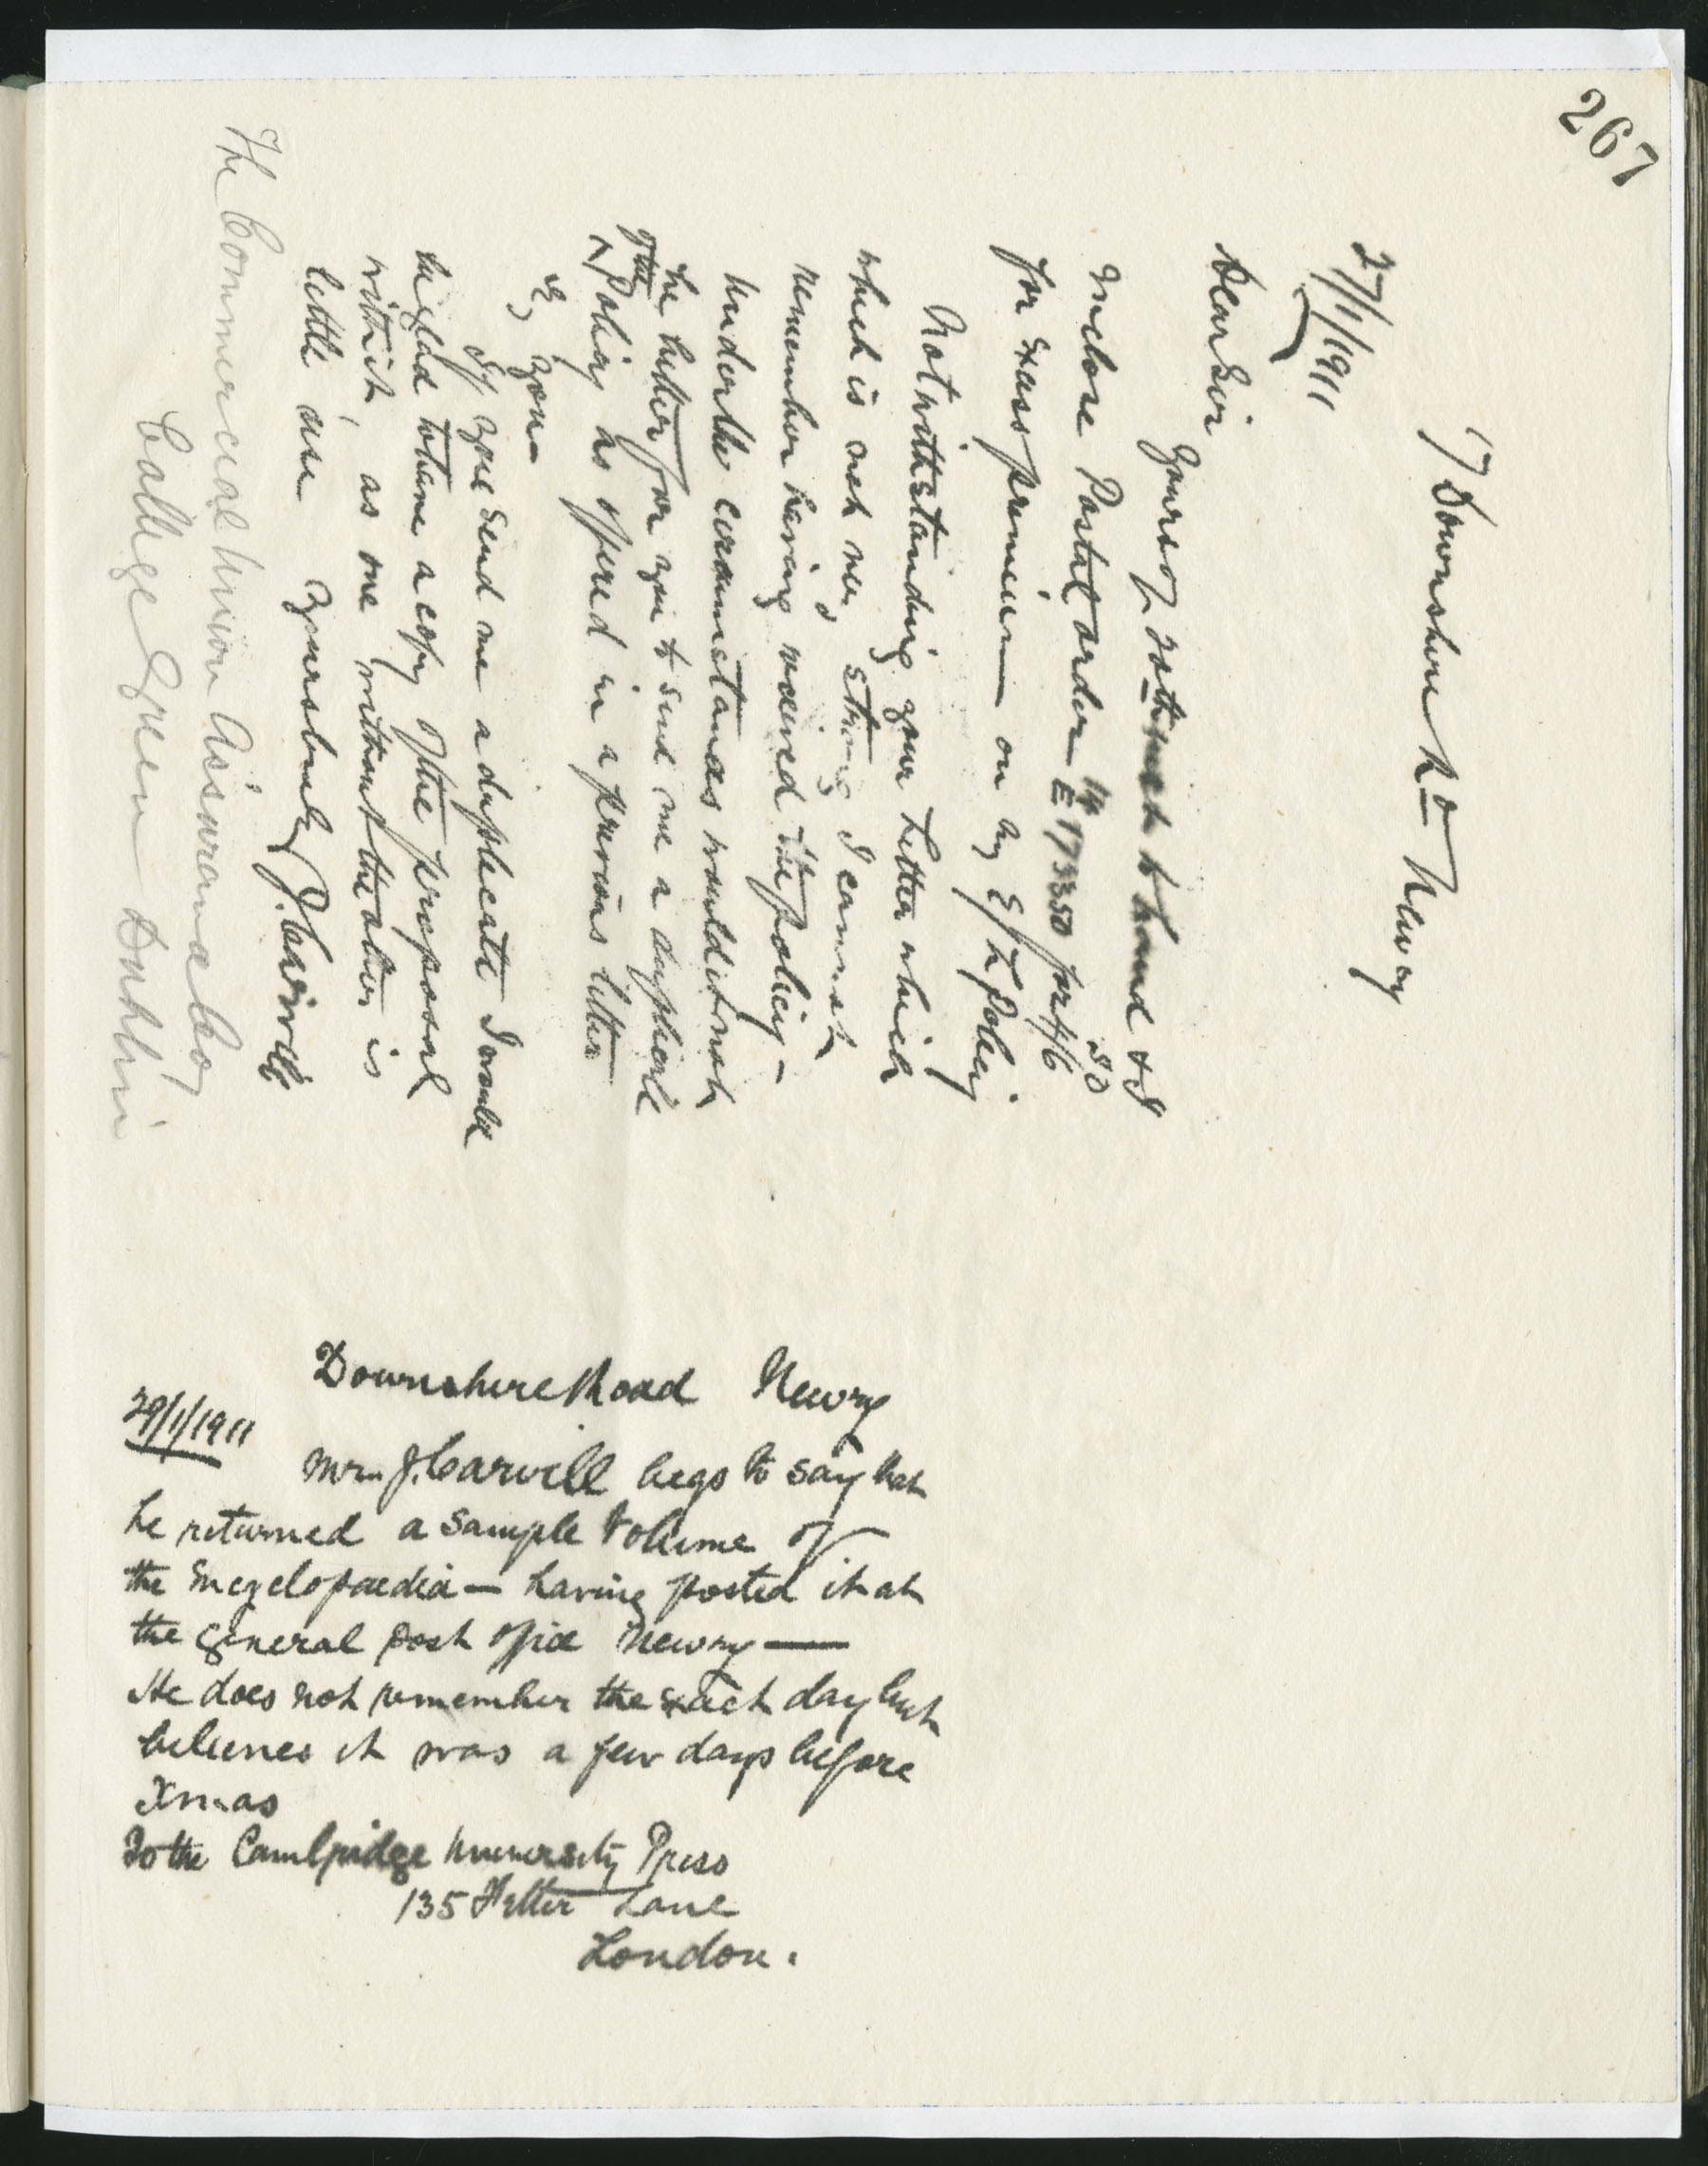 267
17 Downshire Rd Newry
27/1/1911
Dear Sir
Yours of 20th inst to hand & I
inclose Postal order for 4/6
for excess premium on my E/L Policy
Notwithstanding your Letter which
which is not very strong I cannot
remember having received the policy —
Under the circumstances would it not
be better for you to send me a duplicate
of the Policy as offered in a previous letter
by you
If you send me a duplicate I would
be glad to have a copy of the proposal
with it, as one without the other is
little use Yours truly J. Carvill
The Commercial Union Assurance Coy
College Green Dublin
Downshire Road Newry
29/1/1911
Mr. J. Carvill begs to say that
he returned a sample Volume of
the Encyclopaedia — having posted it at
the general post office Newry —
He does not remember the exact day but
believes it was a few days before
Xmas
To the Cambridge University Press
135 Fetter Lane
London.